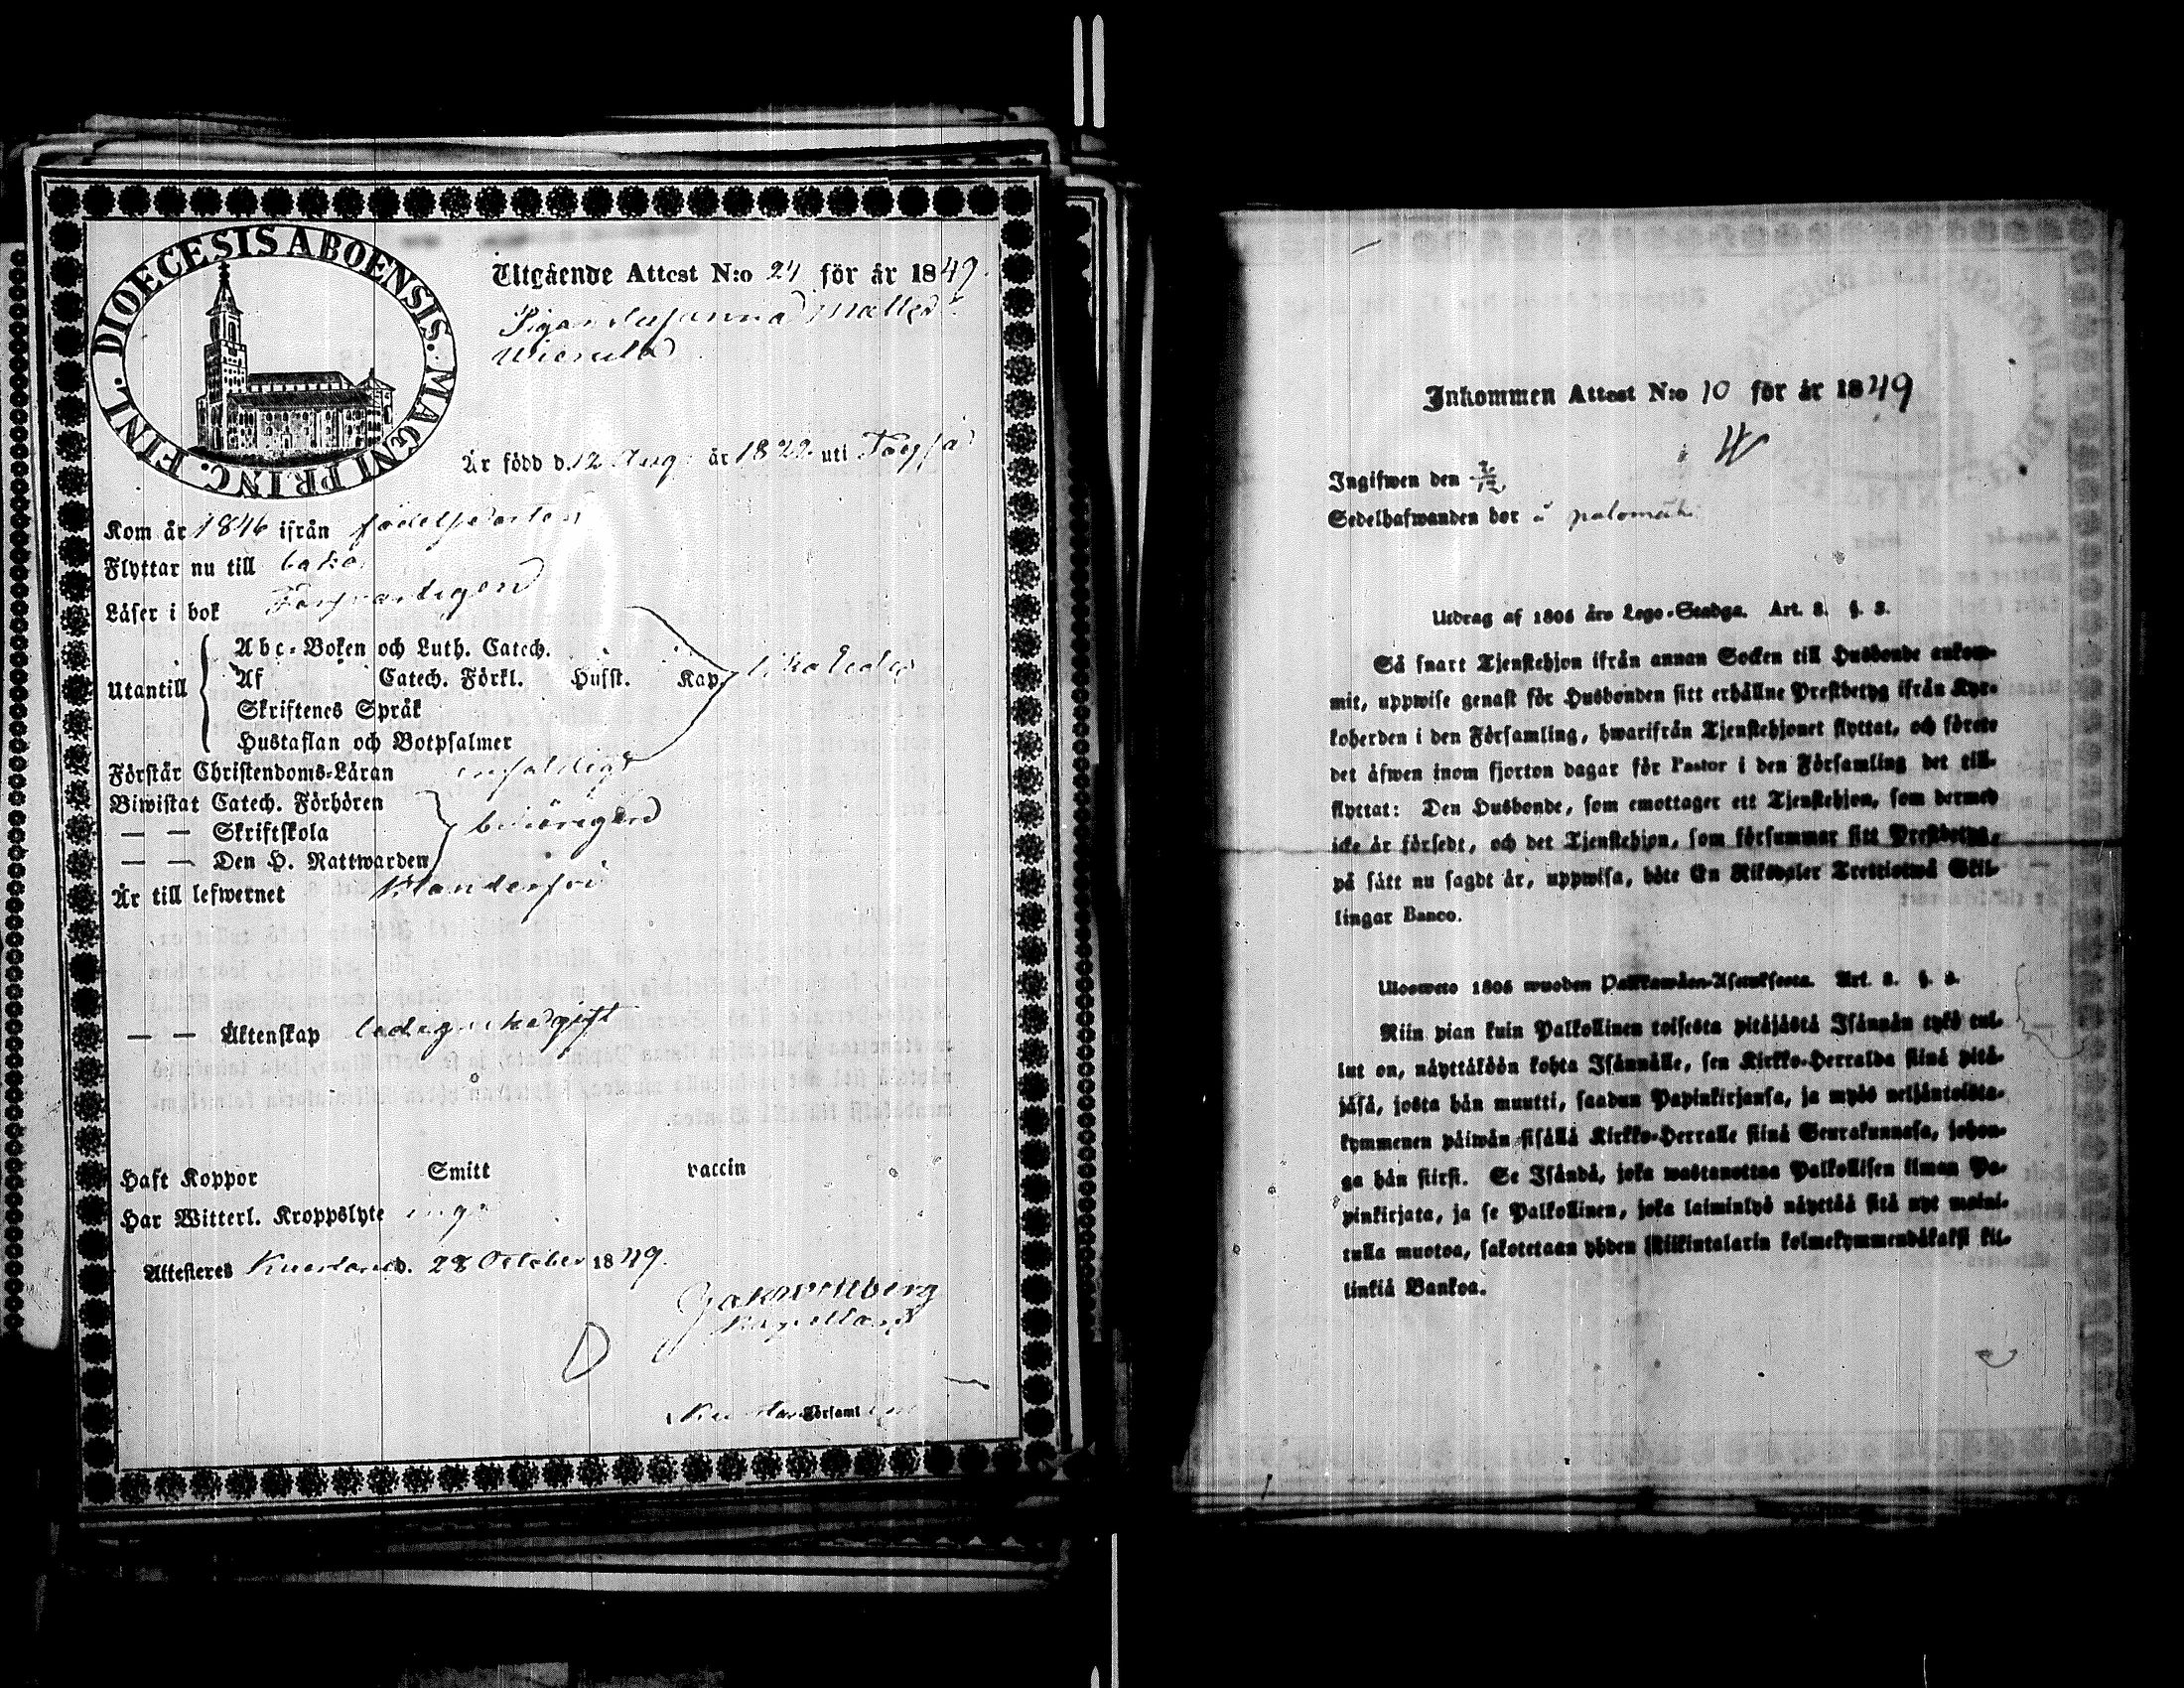 DIOECESIS ABOENSIS. MAGNI PRINC. FINL.
Utgående Attest N:o 24 för år 1849.
Pigan Susanna
Är född d. 12 Aug: år 1822 uti
Kom år 1846 ifrån födelseorten
Flyttar nu till
Läser i bok Försvarligen
Utantill
Abc-Boken och Luth. Catech.
Af Catech. Förkl. Husst. Kap.
Skriftenes Språk
Hustaflan och Botpsalmer
Förstår Christendoms-Läran enfaldigt
Biwistat Catech. Förhören
— — Skriftskola behörigen
— — Den H. Nattwarden
Är till lefwernet klanderfri
— — Äktenskap ledig
Haft Koppor Smitt vaccin
Har Witterl. Kroppslyte inga
Attesteres d. 28 October 1849.
Församl
Inkommen Attest N:o 10 för år 1849
Ingifwen den
Sedelhafwanden bor å
Utdrag af 1805 års Lego-Stadga. Art. 8. §. 3.
Så snart Tjenstehjon ifrån annan Socken till Husbonde ankom-
mit, uppwise genast för Husbonden sitt erhållne Prestbetyg ifrån Kyr-
koherden i den Församling, hwarifrån Tjenstehjonet flyttat, och förete
det äfwen inom fjorton dagar för Pastor i den Församling det till-
flyttat: Den Husbonde, som emottager ett Tjenstehjon, som dermed
icke är försedt, och det Tjenstehjon, som försummar sitt Prestbetyg,
på sätt nu sagdt är, uppwisa, böte En Riksdaler Trettiotwå Skil-
lingar Banco.
Ulosweto 1805 wuoden Palkkawäen-Asetuksesta. Art. 8. §. 3.
Niin pian kuin Palkollinen toisesta pitäjästä Isännän tykö tul-
lut on, näyttäköön kohta Isännälle, sen Kirkko-Herralda siinä pitä-
jäsä, josta hän muutti, saadun Papinkirjansa, ja myös neljäntoista-
kymmenen päiwän sisällä Kirkko-Herralle siinä Seurakunnasa, johon-
ga hän siirsi. Se Isändä, joka wastanottaa Palkollisen ilman Pa-
pinkirjata, ja se Palkollinen, joka laiminlyö näyttää sitä nyt maini-
tulla muotoa, sakotetaan yhden Riikintalarin kolmekymmendäkaksi kil-
linkiä Bankoa.